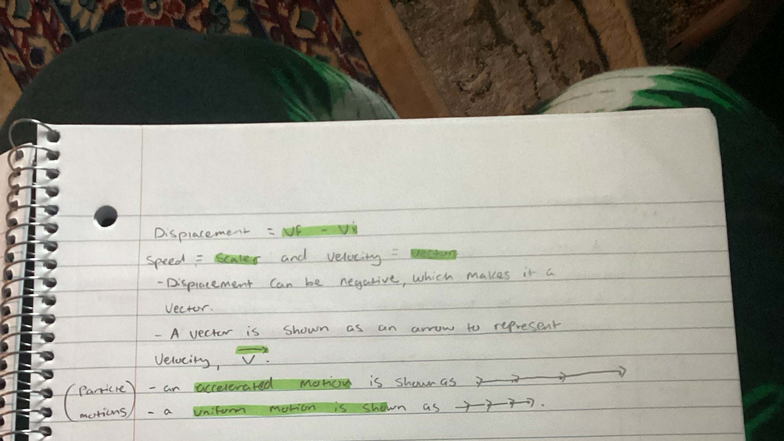 Displacement = Vf - Vi
Speed = Scaler and Velocity = Vector
- Displacement can be negative, which makes it a
vector.
- A vector is shown as an arrow to represent
velocity, V⃗.
(Particle motions) - an accelerated motion is shown as →→→→
- a uniform motion is shown as →→→→.